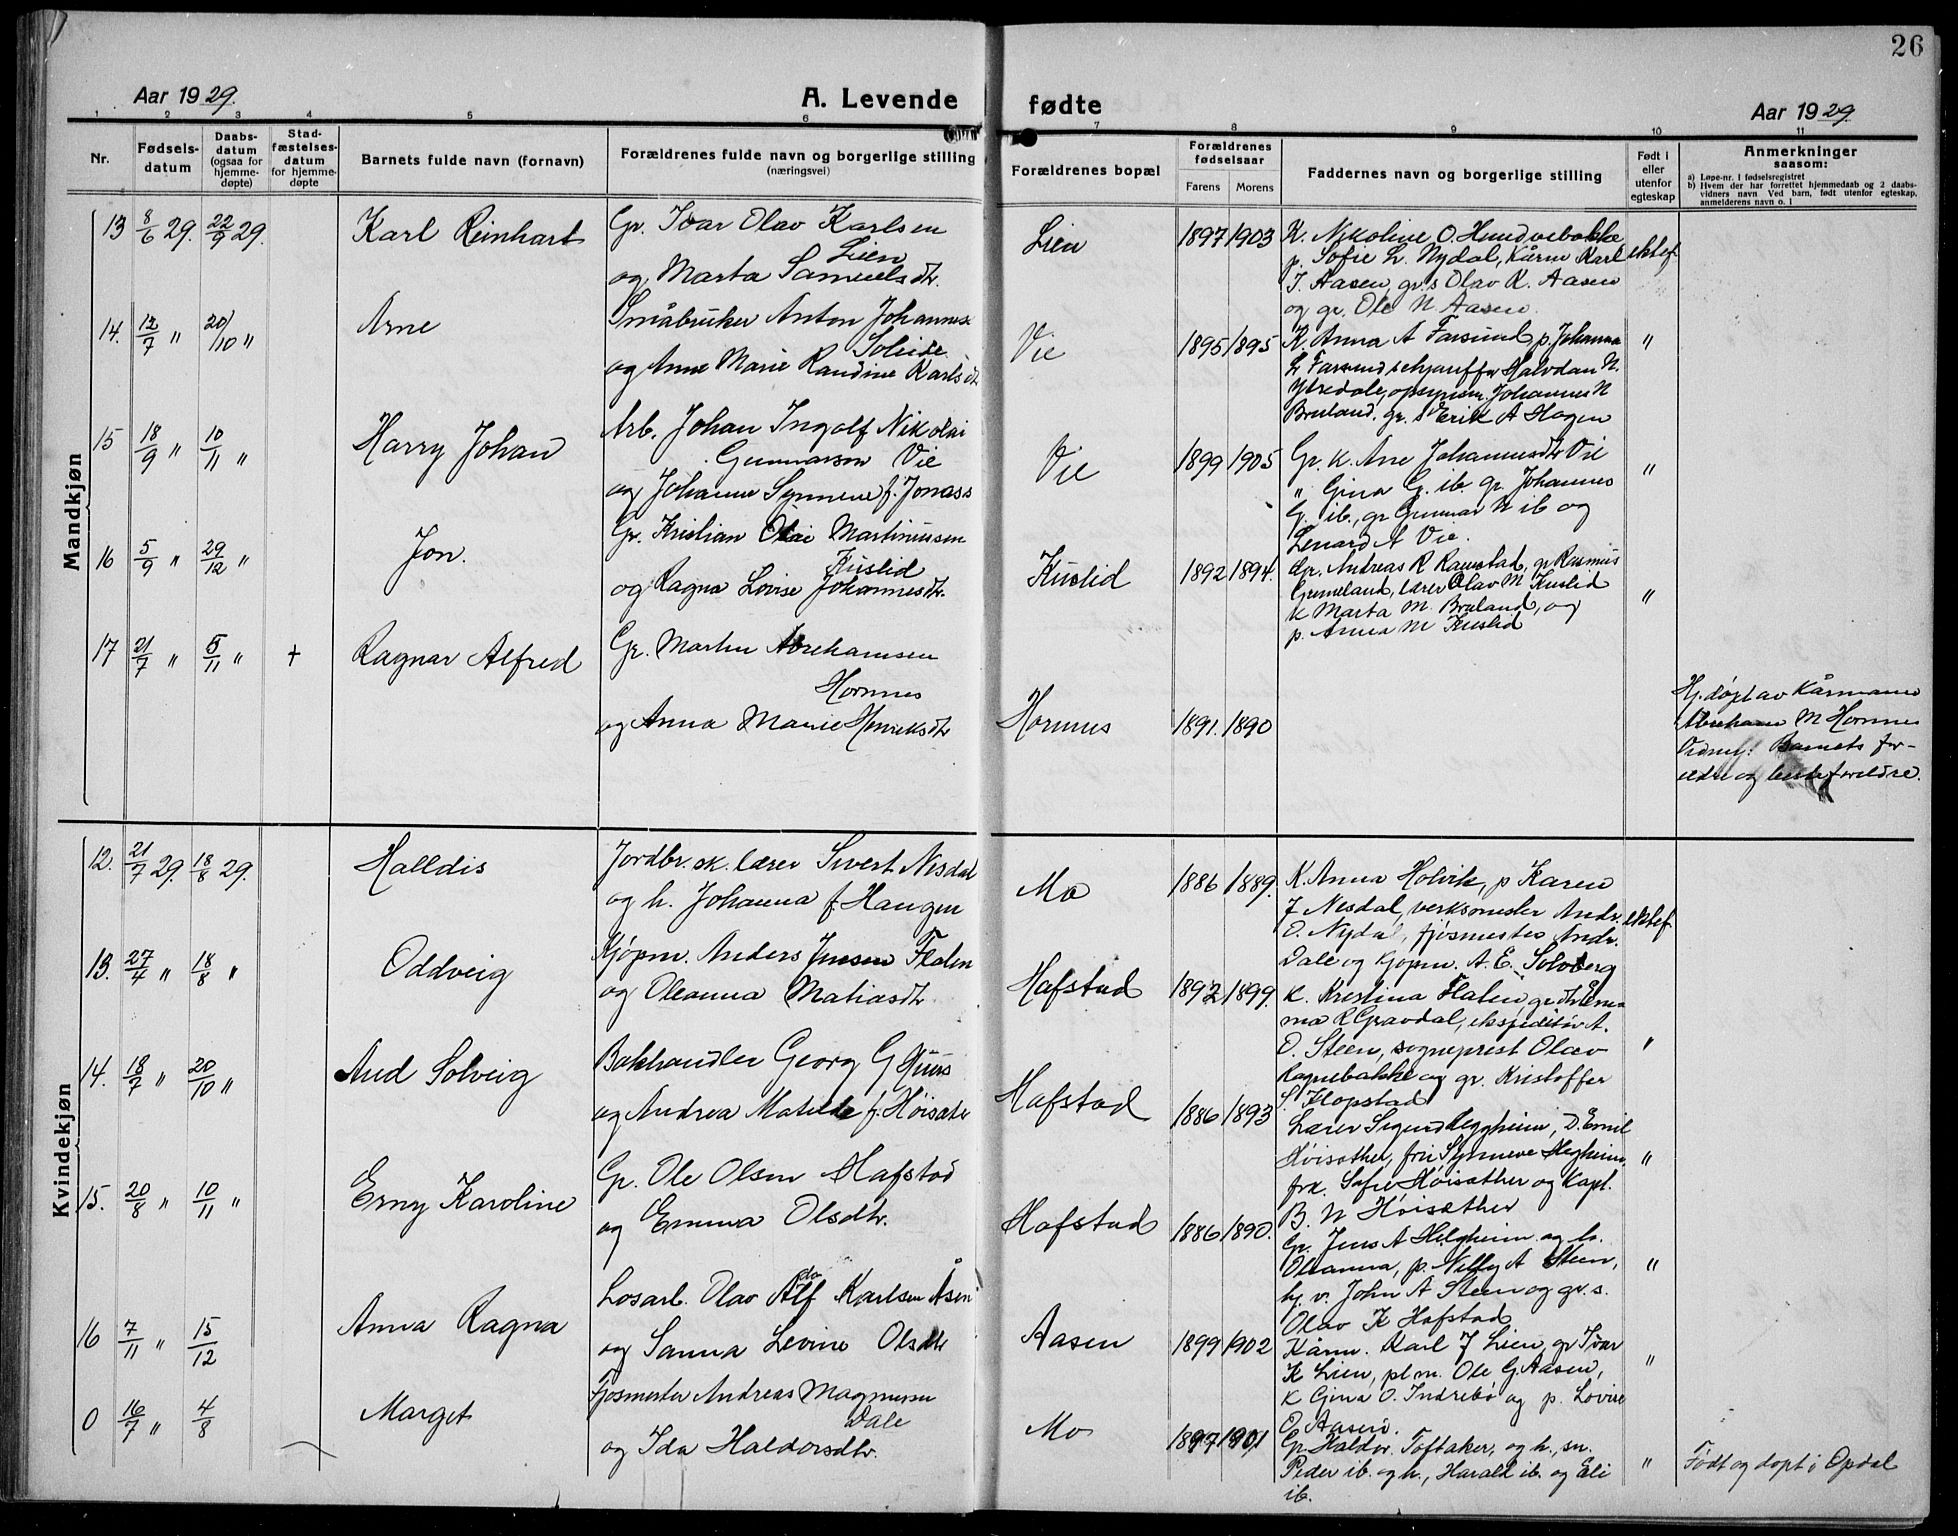 26
Aar 1929.
A. Levende fødte
Aar 1929.
1 2 3 4 5 6 7 8 9 10 11
Nr.
Fødsels-
datum
Daabs-
datum
(ogsaa for
hjemme-
døpte)
Stad-
fæstelses-
datum
for hjemme-
døpte
Barnets fulde navn (fornavn)
Forældrenes fulde navn og borgerlige stilling
(næringsvei)
Forældrenes bopæl
Forældrenes
fødselsaar
Farens Morens
Faddernes navn og borgerlige stilling
Født i
eller
utenfor
egteskap
Anmerkninger
saasom:
a) Løpe-nr. i fødselsregistret
b) Hvem der har forrettet hjemmedaab og 2 daabs-
vidners navn Ved barn, født utenfor egteskap,
anmelderens navn o. l
Mandkjøn
13 8/6 29. 22/9 29. Karl Reinhart
Gr. Ivar Olav Karlsen
Lien
og Marta Samuelsdtr.
Lien 1897 1903
K. Nikoline O. Hundvebakke
p. Sofie L. Nydal, Kårm Karl
J. Aasen, gr.s Olav K. Aasen
og gr. Ole N Aasen.
ektef.
14. 12/7 " 20/10 " Arne
Småbruker Anton Johannes
Solheim
og Anne Marie Randine Karlsdtr
Vie 1895 1895
K. Anna A Farsund p. Johanna
L Farsund, sjauffør Halvdan N.
Ytredale, opsynsm. Johannes N
Bruland. gr. s Erik A Hagen
"
15 18/9 " 10/11 " Harry Johan
Arb. Johan Ingolf Nikolai
Gunnarson Vie
og Johanne Synneve f. Jonass
Vie 1899 1905
Gr. K. Ane Johannesdtr Vie
" Gina G. ib. gr. Johannes
G. ib., gr Gunnar N ib og
Lenard A Vie.
"
16 5/9 " 29/12 " Jon.
Gr. Kristian Olai Martinusen
Kuslid
og Ragna Lovise Johannesdtr.
Kuslid 1892 1894.
Gr. Andreas R Ramstad, gr Rasmus
Grimeland, lærer Olav M Kuslid
K Marta M. Bruland, og
p. Anna M Kuslid
"
17 21/7 " 5/11 " + Ragnar Alfred
Gr. Martin Abrehamsen
Hornnes
og Anna Marie Henriksdtr
Hornnes 1891. 1890
Hj. døpt av Kårmann
Abreham M Hornnes
Barnets for-
eldre og besteforeldre.
Kvindekjøn
12. 21/7 29. 18/8 29. Halldis
Jordbr. sk. lærer Sivert Nesdal
og h. Johanna f. Haugen
Mo 1886 1889.
K. Anna Holvik, p Karen
J Nesdal, verksmester Andr.
O. Nydal, fjøsmester Andr.
Dale og Kjøpm. A. E. Solberg
ektef
13. 27/4 " 18/8 " Oddveig
Kjøpm. Anders Jensen Flaten
og Oleanna Matiasdtr
Hafstad 1892 1899.
K. Kristina Flaten, gr dtr Em
ma R Gravdal, ekspeditør A.
O. Steen, sogneprest Olav
Ragnebakke og gr. Kristoffer
S. Klopstad
"
14. 18/7 " 20/10 " Aud Solveig
Bokhandler Georg G
og Andrea Matilde f. Høisæter
Hafstad 1886 1893
Lærer Sigurd Heggheim, D. Emil
Høisæther, fru Synneve Hegheim,
frk. Sofie Høisæther og Kapt.
B. N Høisæther
"
15. 20/8 " 10/11 " Erny Karoline
Gr. Ole Olsen Hafstad
og Emma Olsdtr.
Hafstad 1886 1890.
Gr. Jens A Helgheim og h.
Oleanna, p. Nelly A Steen,
hj. v. John A Steen og gr. s.
Olav K Hafstad
"
16 7/11 15/12 Anna Ragna
Losarb. Olav Alf Karlsen Åsen
og Sanna Levine Olsdtr
Aasen 1899 1902
Kårm. Karl J Lien, gr Ivar
K Lien, plm. Ole G. Aasen,
K Gina O. Indrebø og p. Lovise
O. Aasen.
"
0 16/7 " 4/8 Marget
Fjøsmester Andreas Magnusen
Dale
og Ida Haldorsdtr.
Mo 1897 1901
Gr. Haldor. Toftaker, og h., sn.
Peder ib. og h., Harald ib. og Eli
ib.
" Født og døpt i Opdal